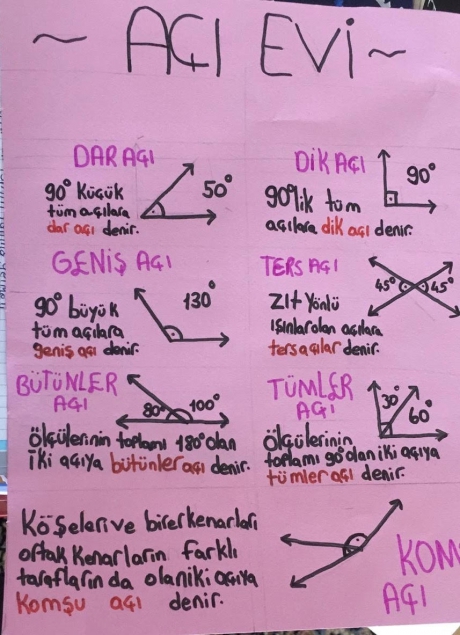 ~ AÇI EVİ ~
DAR AÇI
50°
90° küçük
tüm açılara
dar açı denir.
DİK AÇI
90°
90°lik tüm
açılara dik açı denir.
GENİŞ AÇI
130°
90° büyük
tüm açılara
geniş açı denir.
TERS AÇI
45° 45°
Zıt Yönlü
ışınlar olan açılara
ters açılar denir.
BÜTÜNLER
AÇI
80° 100°
ölçülerinin toplamı 180° olan
iki açıya bütünler açı denir.
TÜMLER
AÇI
30°
60°
ölçülerinin
toplamı 90° olan iki açıya
tümler açı denir.
Köşeleri ve birer kenarları
ortak kenarların farklı
tarafların da olan iki açıya
Komşu açı denir.
KOM
AÇI